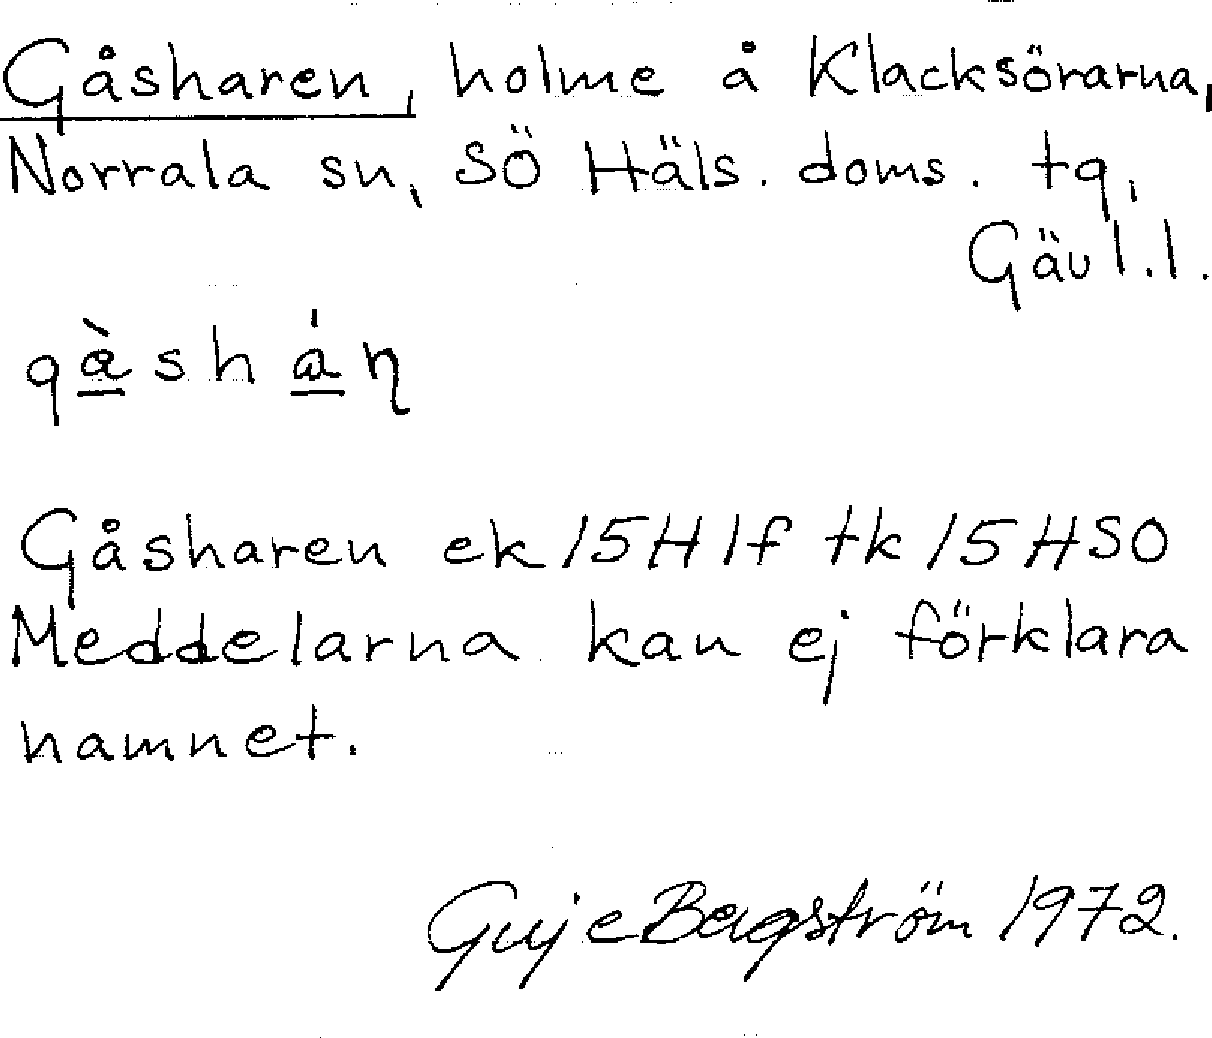 Gåsharen, holme å Klacksörarna,
Norrala sn, SÖ Häls. doms. tg,
Gävl.l.
Gåsharen ek 15H1f tk 15HSO
Meddelarna kan ej förklara
namnet.
Guje Bergström 1972.